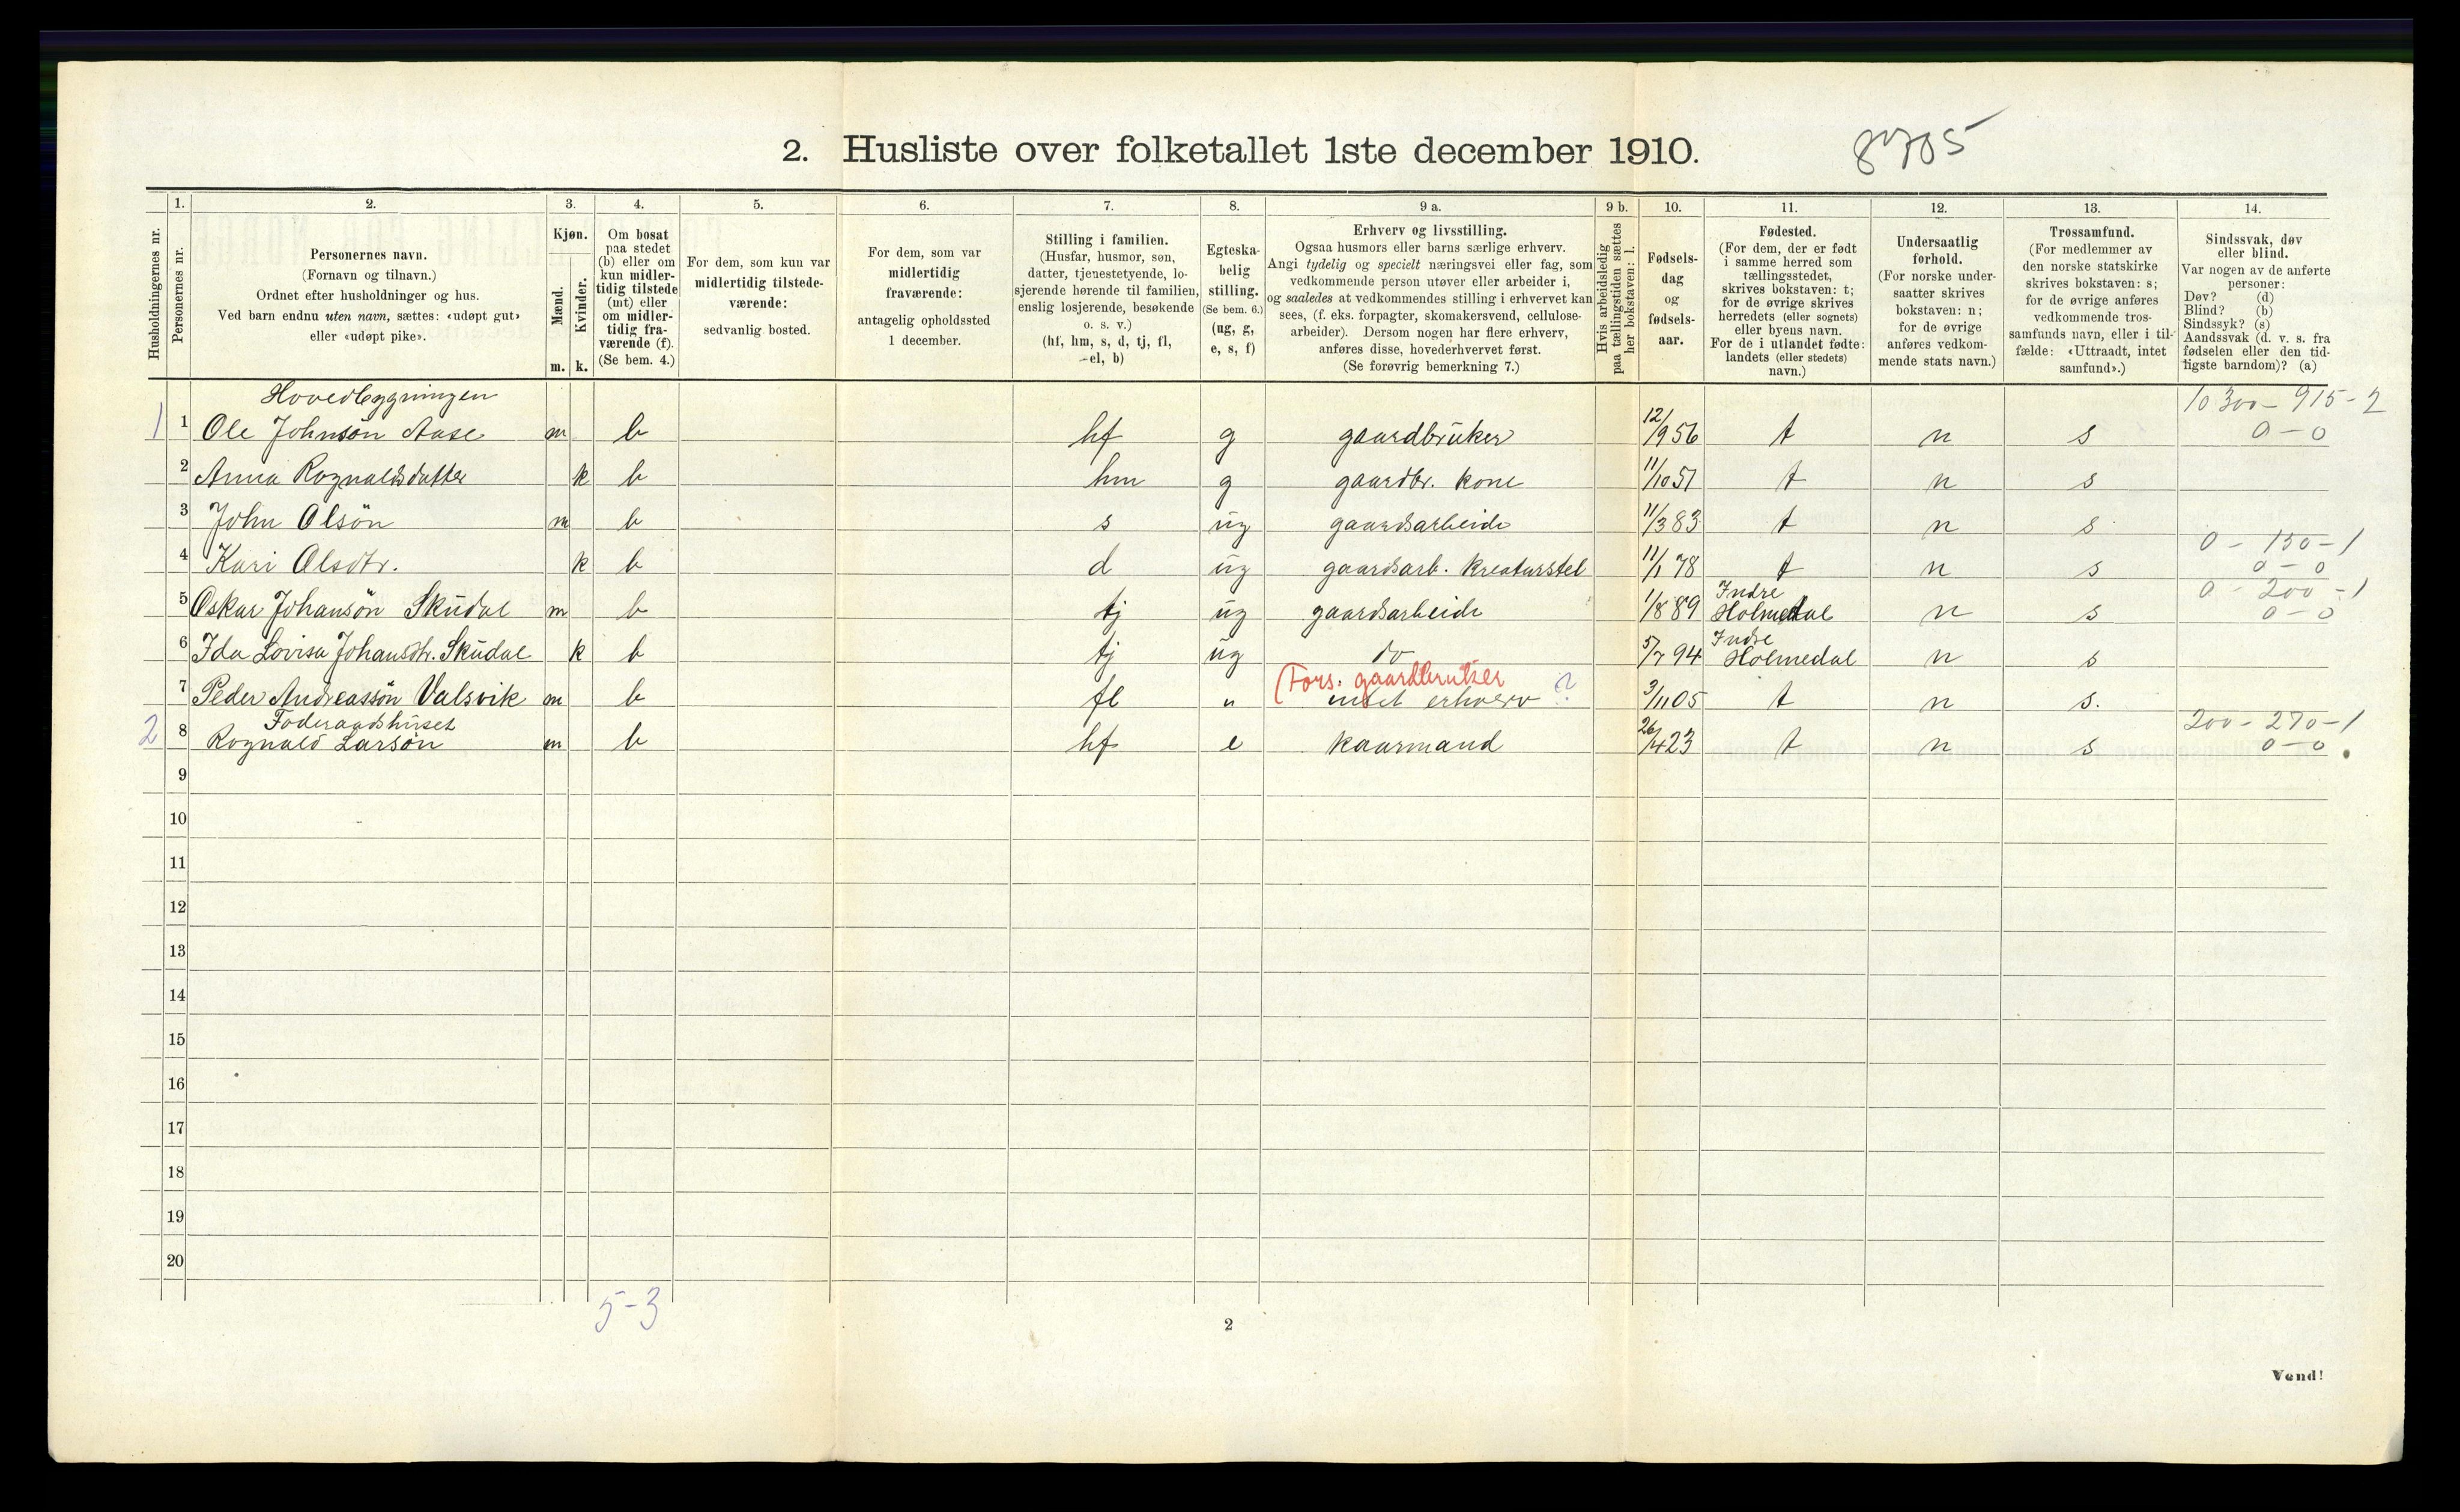 2. Husliste over folketallet 1ste december 1910.
8705
1. 2. 3. 4. 5. 6. 7. 8. 9 a. 9 b. 10. 11. 12. 13. 14.
Husholdningernes nr.
Personernes nr.
Personernes navn.
(Fornavn og tilnavn.)
Ordnet efter husholdninger og hus.
Ved barn endnu uten navn, sættes: «udøpt gut»
eller «udøpt pike».
Kjøn.
Mænd.
Kvinder.
m. k.
Om bosat
paa stedet
(b) eller om
kun midler-
tidig tilstede
(mt) eller
om midler-
tidig fra-
værende (f).
(Se bem. 4.)
For dem, som kun var
midlertidig tilstede-
værende:
sedvanlig bosted.
For dem, som var
midlertidig
fraværende:
antagelig opholdssted
1 december.
Stilling i familien.
(Husfar, husmor, søn,
datter, tjenestetyende, lo-
sjerende hørende til familien,
enslig losjerende, besøkende
o. s. v.)
(hf, hm, s, d, tj, fl,
el, b)
Egteska-
belig
stilling.
(Se bem. 6.)
(ug, g,
e, s, f)
Erhverv og livsstilling.
Ogsaa husmors eller barns særlige erhverv.
Angi tydelig og specielt næringsvei eller fag, som
vedkommende person utøver eller arbeider i,
og saaledes at vedkommendes stilling i erhvervet kan
sees, (f. eks. forpagter, skomakersvend, cellulose-
arbeider). Dersom nogen har flere erhverv,
anføres disse, hovederhvervet først.
(Se forøvrig bemerkning 7.)
Hvis arbeidsledig
paa tællingstiden sættes
her bokstaven: l.
Fødsels-
dag
og
fødsels-
aar.
Fødested.
(For dem, der er født
i samme herred som
tællingsstedet,
skrives bokstaven: t;
for de øvrige skrives
herredets (eller sognets)
eller byens navn.
For de i utlandet fødte:
landets (eller stedets)
navn.)
Undersaatlig
forhold.
(For norske under-
saatter skrives
bokstaven: n;
for de øvrige
anføres vedkom-
mende stats navn.)
Trossamfund.
(For medlemmer av
den norske statskirke
skrives bokstaven: s;
for de øvrige anføres
vedkommende tros-
samfunds navn, eller i til-
fælde: «Uttraadt, intet
samfund».)
Sindssvak, døv
eller blind.
Var nogen av de anførte
personer:
Døv? (d)
Blind? (b)
Sindssyk? (s)
Aandssvak (d. v. s. fra
fødselen eller den tid-
ligste barndom)? (a)
Hovedbygningen 10300-915-2
1 1 Ole Johnsön Aase m b hf g gaardbruker 12/9 56 t n s 0-0
2 Anna Rognaldsdatter k b hm g gaardbr. kone 11/10 51 t n s
3 John Olsön m b s ug gaardsarbeide 11/3 83 t n s
0-150-1
4 Kari Olsdtr. k b d ug gaardsarb. kreaturstel 11/1 78 t n s 0-0
Indre 0-200-1
5 Oskar Johansön Skudal m b tj ug gaardsarbeide 1/8 89 Holmedal n s 0-0
Indre
6 Ida Lovisa Johansdtr. Skudal k b tj ug do 5/7 94 Holmedal n s
(Fors. gaardbruker
7 Peder Andreassön Valsvik m b fl u intet erhverv ? 3/11 05 t n s.
Föderaadshuset 200-270-1
2 8 Rognald Larsön m b hf e kaarmand 26/4 23 t n s 0-0
9
10
11
12
13
14
15
16
17
18
19
20
5-3
2
Vend!